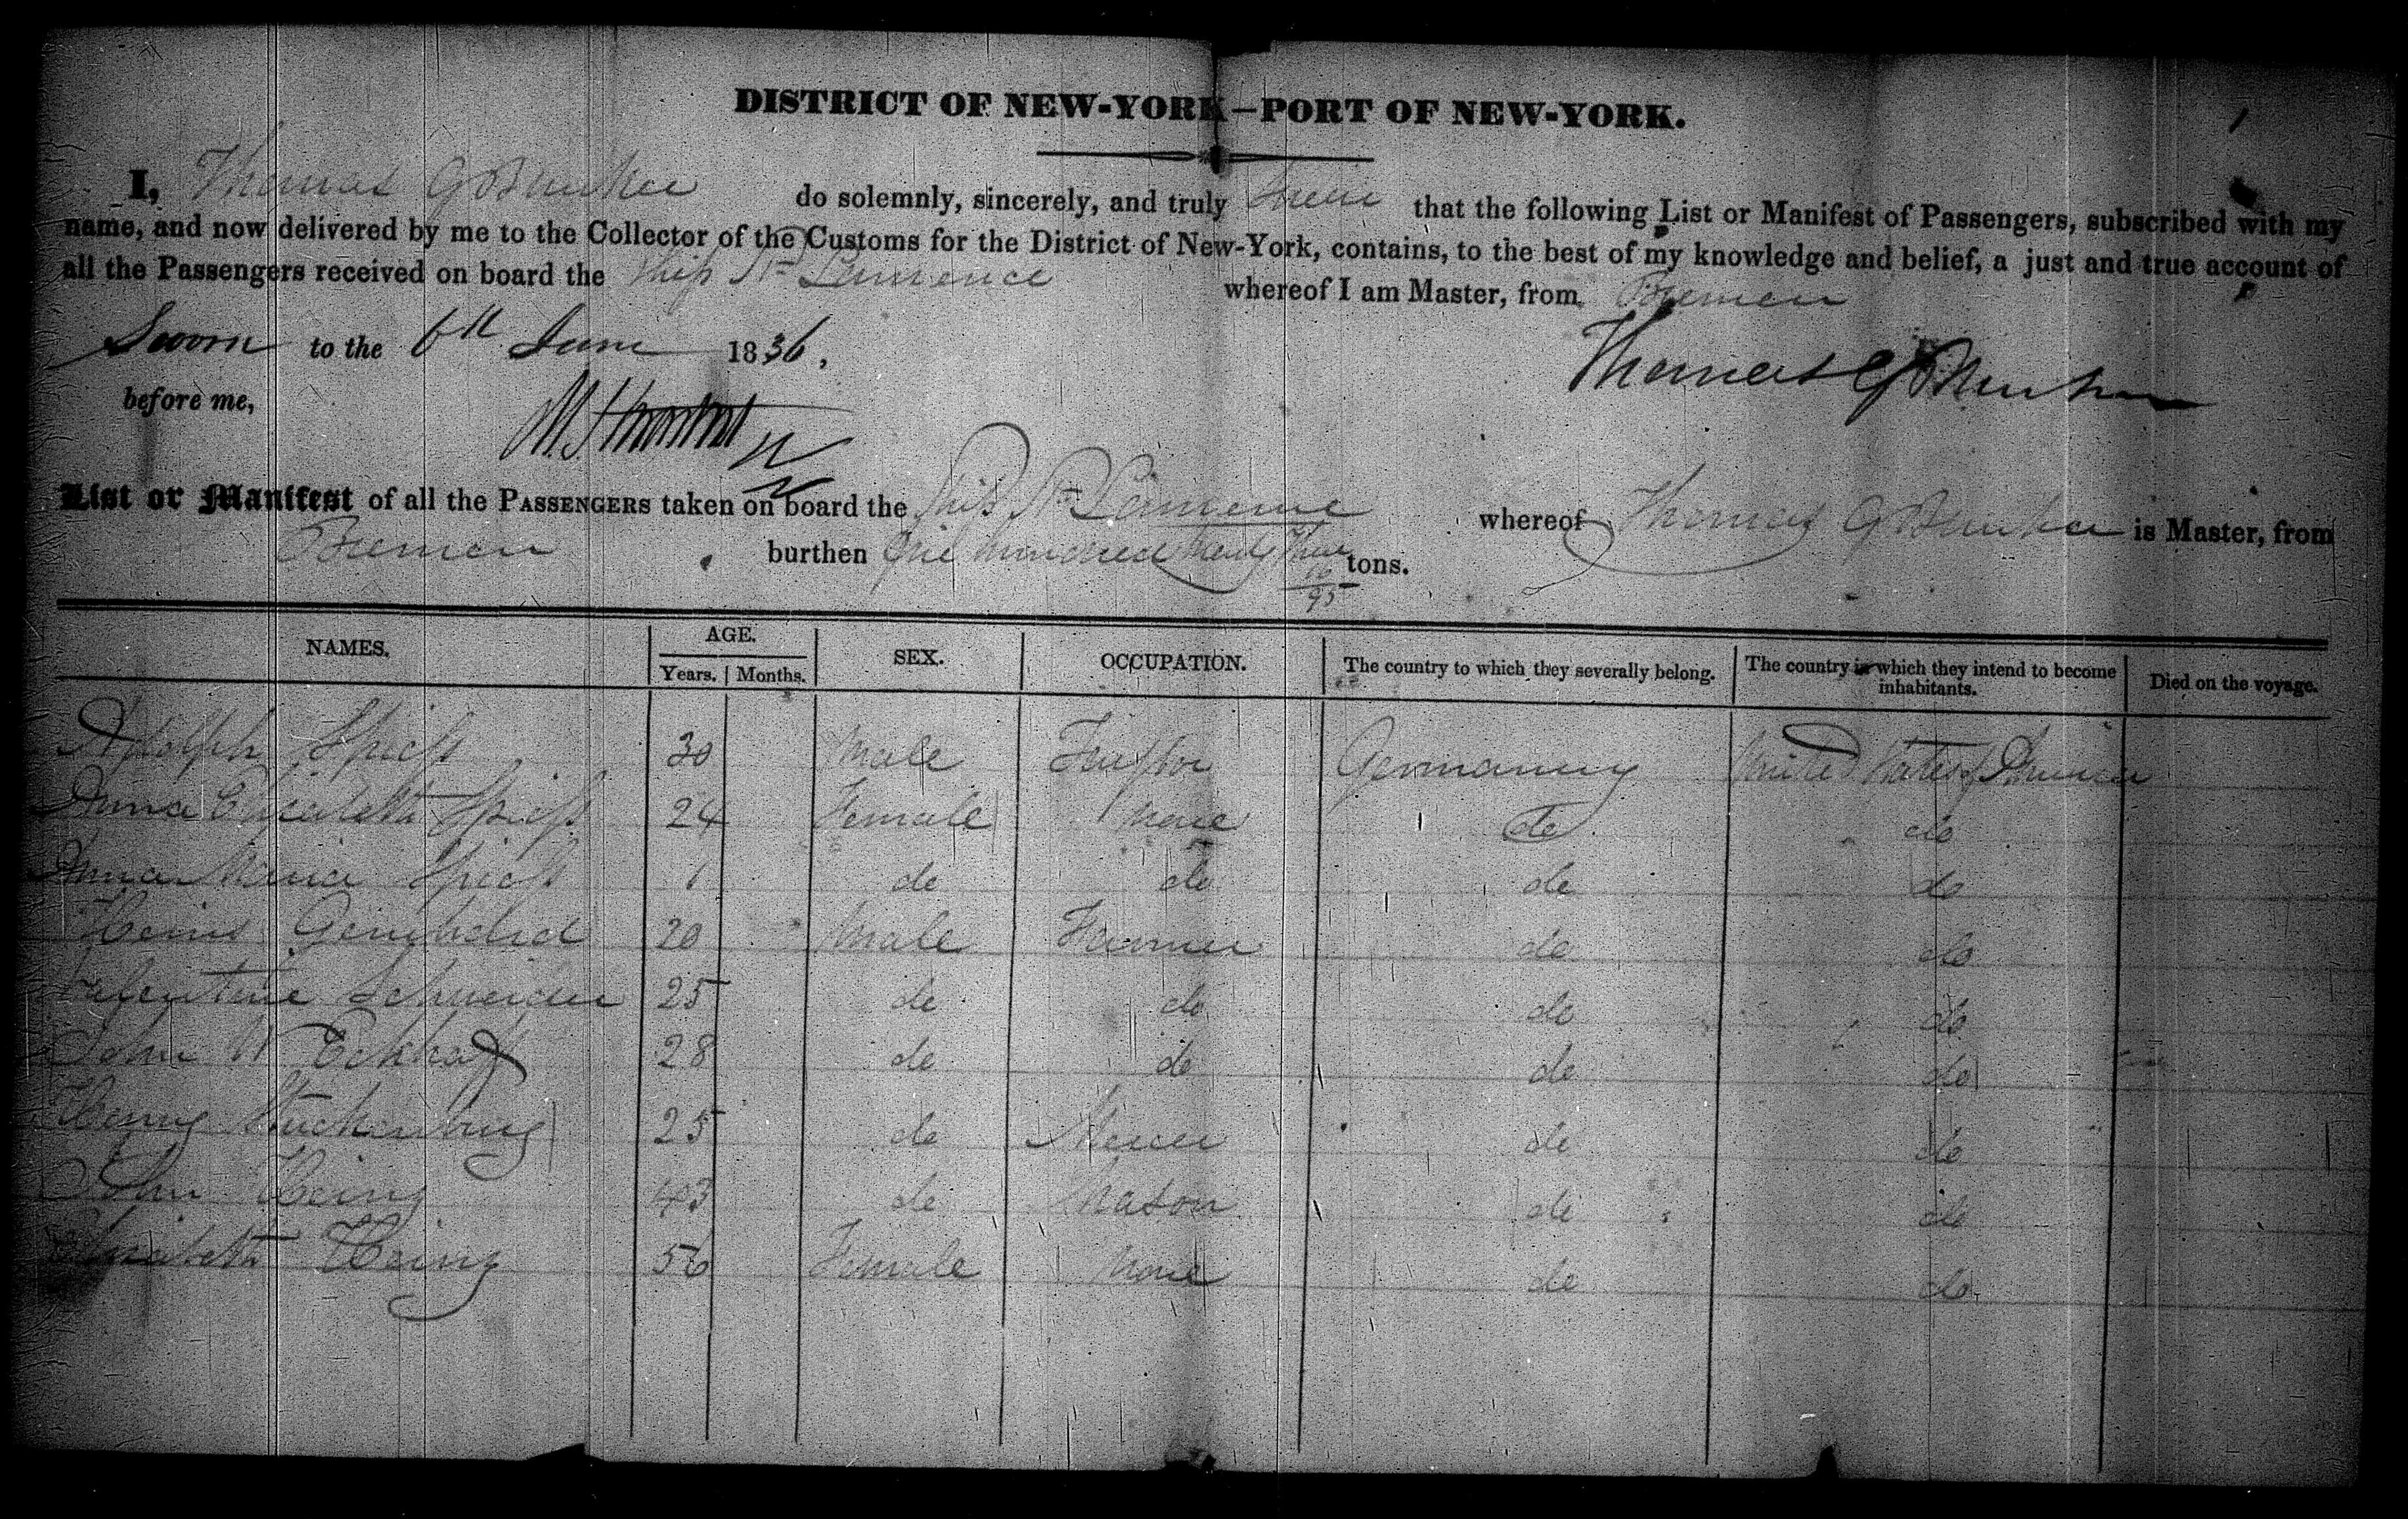 DISTRICT OF NEW-YORK—PORT OF NEW-YORK.
1
I, Thomas G Bunker do solemnly, sincerely, and truly Swear that the following List or Manifest of Passengers, subscribed with my
name, and now delivered by me to the Collector of the Customs for the District of New-York, contains, to the best of my knowledge and belief, a just and true account of
all the Passengers received on board the Ship St Lawrence whereof I am Master, from Bremen
Sworn to the 6th June 1836,
Thomas G Bunker
before me,
List or Manifest of all the PASSENGERS taken on board the Ship St Lawrence whereof Thomas G Bunker is Master, from
Bremen burthen One hundred tons.
95
NAMES. AGE. SEX. OCCUPATION. The country to which they severally belong. The country in which they intend to become inhabitants. Died on the voyage.
Years. Months.
Adolph Spiess 30 Male Germany United States of America
Anna Elizabeth Spiess 24 Female None do do
Anna Maria Spiess 1 do do do do
20 Male Farmer do do
Valentine Schneider 25 do do do do
John W Eckhart 28 do do do do
Henry Stuckenburg 25 do do do
John Heing 43 do Mason do do
Elizabeth Heing 56 Female None do do